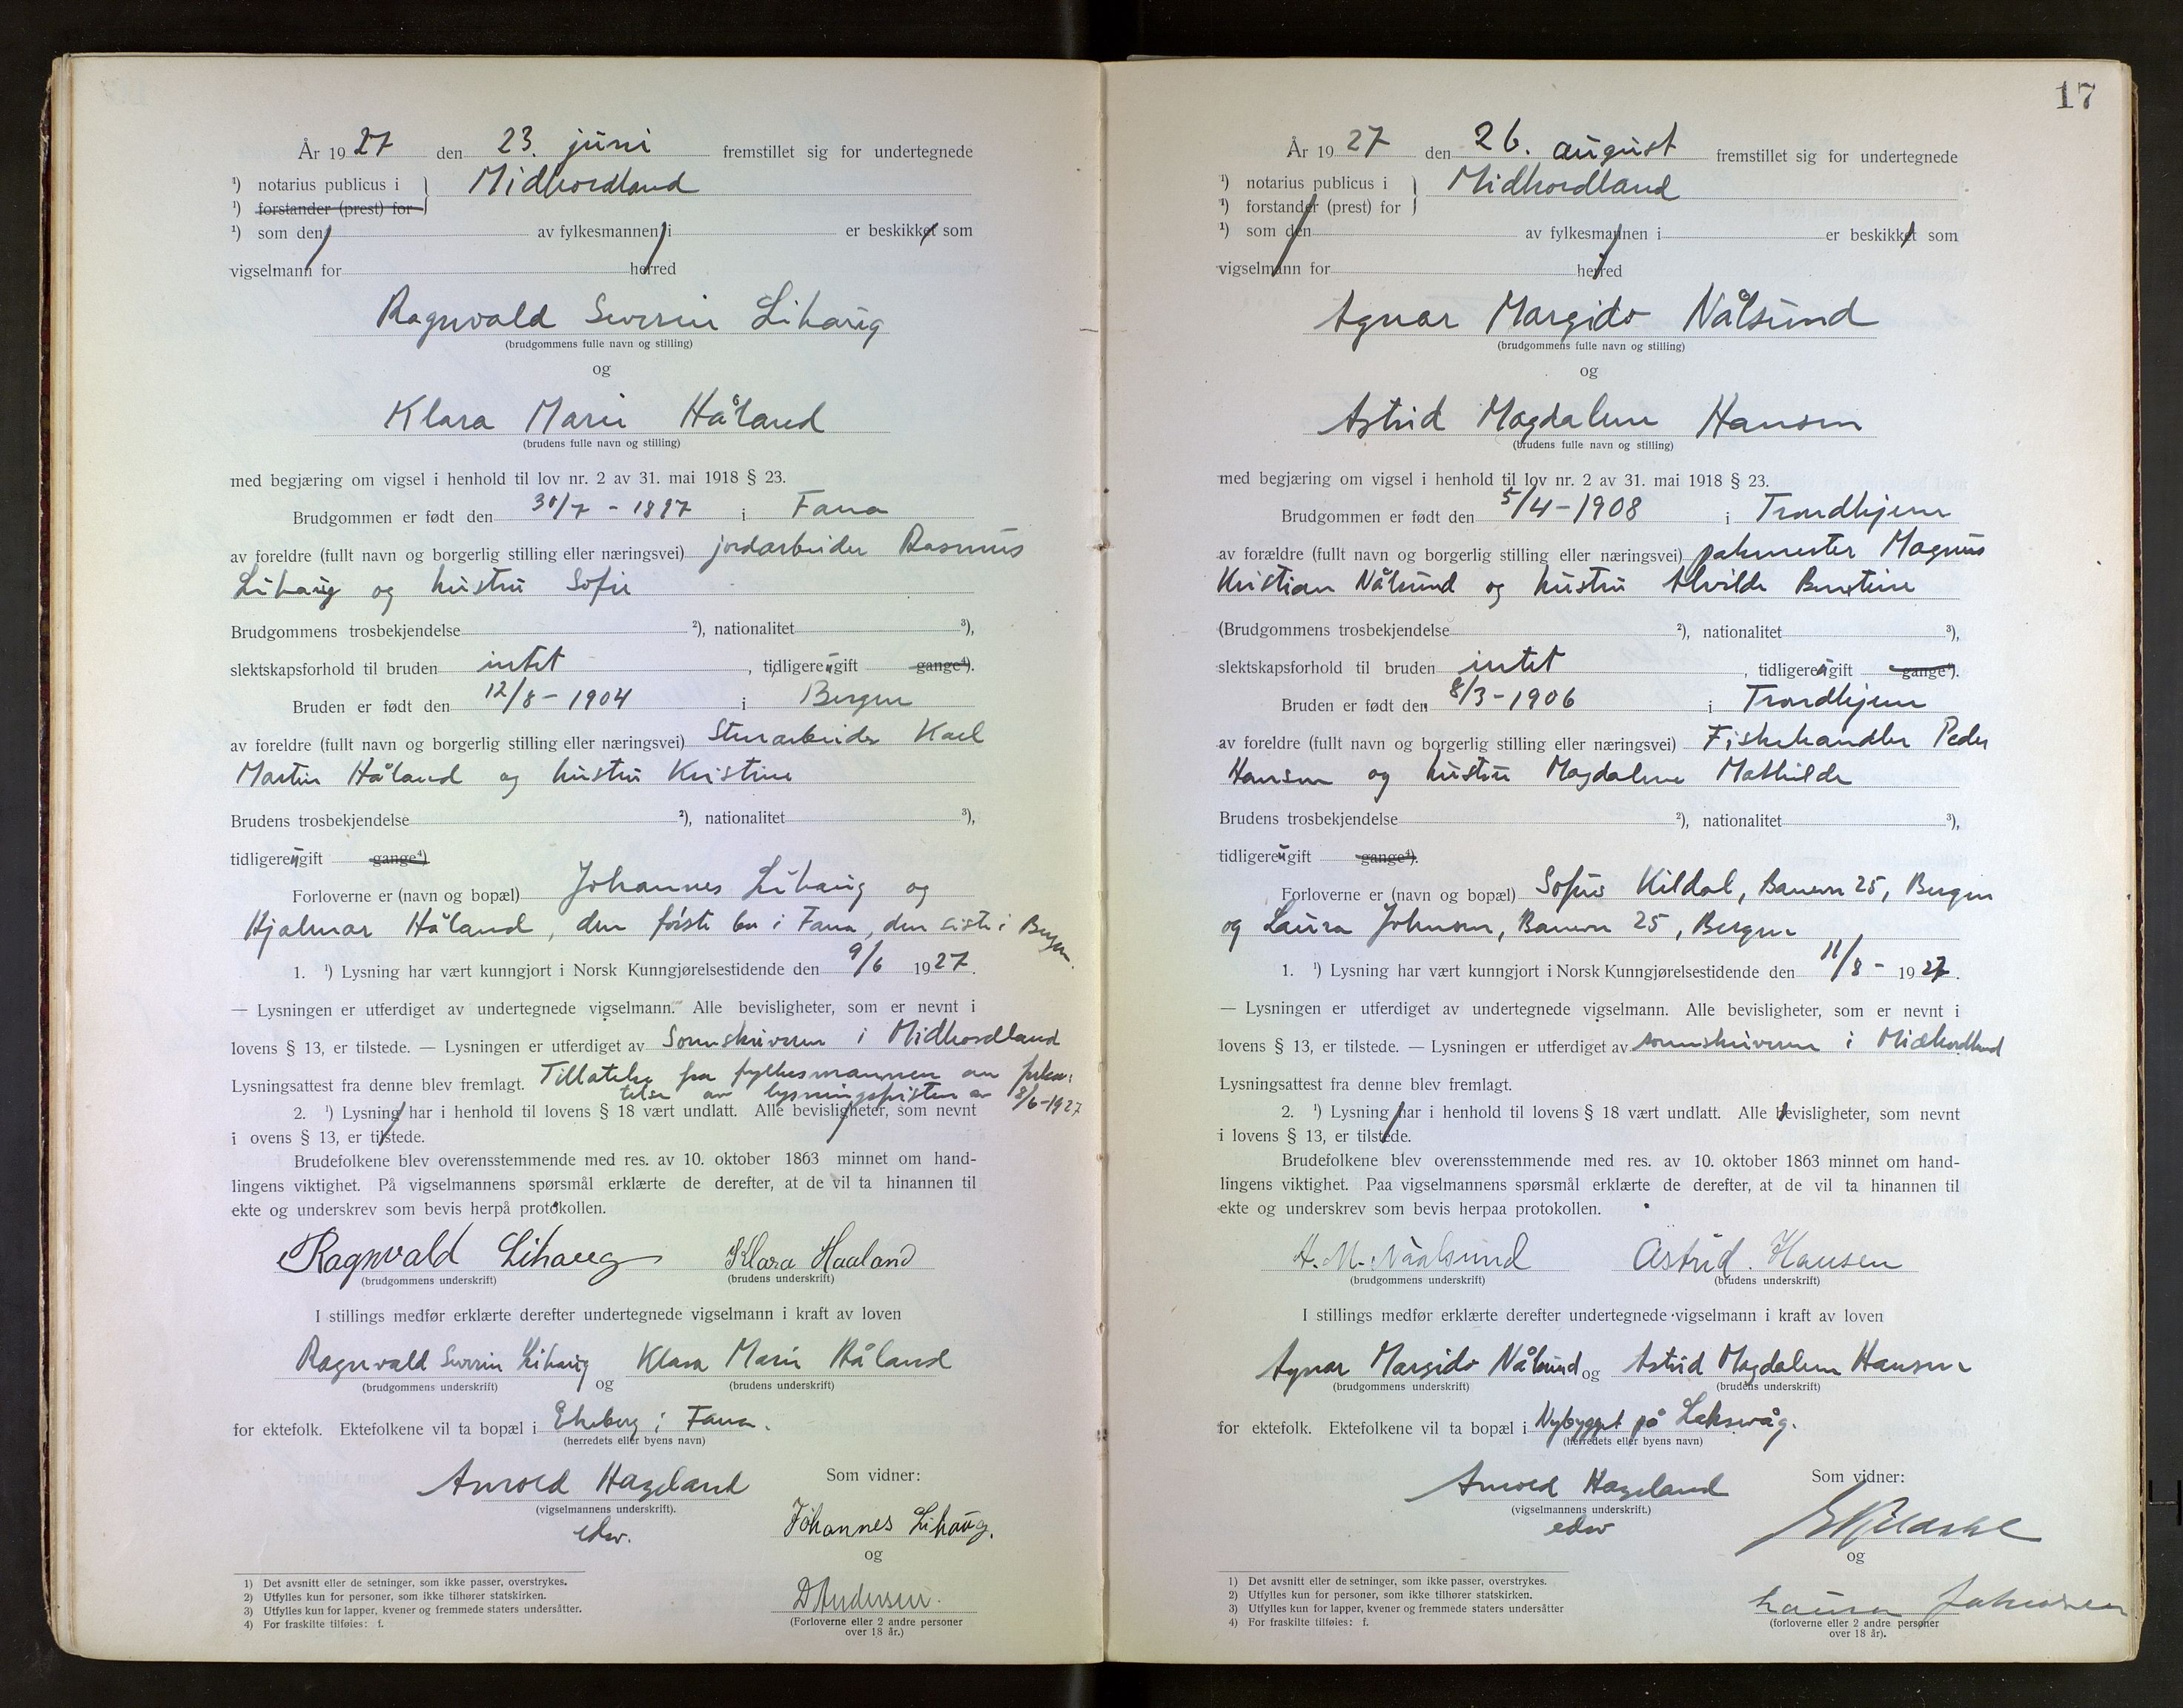 År 1927 den 23. juni fremstillet sig for undertegnede
¹) notarius publicus i } Midhordland
¹) forstander (prest) for
¹) som den av fylkesmannen i er beskikket som
vigselmann for herred
Ragnvald Severin Lihaug
(brudgommens fulle navn og stilling)
og
Klara Marie Håland
(brudens fulle navn og stilling)
med begjæring om vigsel i henhold til lov nr. 2 av 31. mai 1918 § 23.
Brudgommen er født den 30/7 - 1897 i Fana
av foreldre (fullt navn og borgerlig stilling eller næringsvei) jordarbeider Rasmus
Lihaug og hustru Sofie
Brudgommens trosbekjendelse ²), nationalitet ³),
slektskapsforhold til bruden intet , tidligere ugift gange⁴).
Bruden er født den 12/8 - 1904 i Bergen
av foreldre (fullt navn og borgerlig stilling eller næringsvei) Stenarbeider Karl
Martin Håland og hustru Kristine
Brudens trosbekjendelse ²), nationalitet ³),
tidligere ugift gange⁴)
Forloverne er (navn og bopæl) Johannes Lihaug og
Hjalmar Håland, den første bor i Fana, den siste i Bergen.
1. ¹) Lysning har vært kunngjort i Norsk Kunngjørelsestidende den 9/6 1927.
— Lysningen er utferdiget av undertegnede vigselmann. Alle bevisligheter, som er nevnt i
lovens § 13, er tilstede. — Lysningen er utferdiget av Sorenskriveren i Midhordland
Lysningsattest fra denne blev fremlagt. Tillatelse fra fylkesmannen om forkor-
telse av lysningsfristen av 8/6-1927
2. ¹) Lysning har i henhold til lovens § 18 vært undlatt. Alle bevisligheter, som nevnt
i ovens § 13, er tilstede.
Brudefolkene blev overensstemmende med res. av 10. oktober 1863 minnet om hand-
lingens viktighet. På vigselmannens spørsmål erklærte de derefter, at de vil ta hinannen til
ekte og underskrev som bevis herpå protokollen.
Ragnvald Lihaug Klara Haaland
(brudgommens underskrift) (brudens underskrift)
I stillings medfør erklærte derefter undertegnede vigselmann i kraft av loven
Ragnvald Severin Lihaug og Klara Marie Håland
(brudgommens underskrift) (brudens underskrift)
for ektefolk. Ektefolkene vil ta bopæl i Ekeberg i Fana.
(herredets eller byens navn)
Arnold Hazeland
(vigselmannens underskrift).
edsv.
Som vidner:
Johannes Lihaug.
og
D Andersen.
(Forloverne eller 2 andre personer
over 18 år.)
1) Det avsnitt eller de setninger, som ikke passer, overstrykes.
2) Utfylles kun for personer, som ikke tilhører statskirken.
3) Utfylles kun for lapper, kvener og fremmede staters undersåtter.
4) For fraskilte tilføies: f.
17
År 1927 den 26. august fremstillet sig for undertegnede
¹) notarius publicus i } Midhordland
¹) forstander (prest) for
¹) som den av fylkesmannen i er beskikket som
vigselmann for herred
Agnar Margido Nålsund
(brudgommens fulle navn og stilling)
og
Astrid Magdalene Hansen
(brudens fulle navn og stilling)
med begjæring om vigsel i henhold til lov nr. 2 av 31. mai 1918 § 23.
Brudgommen er født den 5/4-1908 i Trondhjem
av forældre (fullt navn og borgerlig stilling eller næringsvei) pakmester Magnus
Kristian Nålsund og hustru Alvilde Berntine
(Brudgommens trosbekjendelse ²), nationalitet ³),
slektskapsforhold til bruden intet , tidligere ugift gange⁴).
Bruden er født den 8/3-1906 i Trondhjem
av foreldre (fullt navn og borgerlig stilling eller næringsvei) Fiskehandler Peder
Hansen og hustru Magdalene Mathilde
Brudens trosbekjendelse ²), nationalitet ³),
tidligere ugift gange⁴).
Forloverne er (navn og bopæl) Sofus Kildal, 25, Bergen
og Laura Johnsen, 25, Bergen
1. ¹) Lysning har vært kunngjort i Norsk Kunngjørelsestidende den 11/8 - 1927.
— Lysningen er utferdiget av undertegnede vigselmann. Alle bevisligheter, som er nevnt i
lovens § 13, er tilstede. — Lysningen er utferdiget av sorenskriveren i Midhordland
Lysningsattest fra denne blev fremlagt.
2. ¹) Lysning har i henhold til lovens § 18 vært undlatt. Alle bevisligheter, som nevnt
i lovens § 13, er tilstede.
Brudefolkene blev overensstemmende med res. av 10. oktober 1863 minnet om hand-
lingens viktighet. Paa vigselmannens spørsmål erklærte de derefter, at de vil ta hinannen til
ekte og underskrev som bevis herpaa protokollen.
A. M. Naalsund Astrid. Hansen
(brudgommens underskrift) (brudens underskrift)
I stillings medfør erklærte derefter undertegnede vigselmann i kraft av loven
Agnar Margido Nålsund og Astrid Magdalene Hansen
(brudgommens underskrift) (brudens underskrift)
for ektefolk. Ektefolkene vil ta bopæl i Nybygget på Laksevåg.
(herredets eller byens navn)
Arnold Hazeland
(vigselmannens underskrift.)
edsv
Som vidner:
og
Laura Johnsen
(forloverne eller 2 andre personer
over 18 år).
1) Det avsnitt eller de setninger, som ikke passer, overstrykes.
2) Utfylles kun for personer, som ikke tilhører statskirken.
3) Utfylles kun for lapper, kvener og fremmede staters undersåtter
4) For fraskilte tilføies: f.